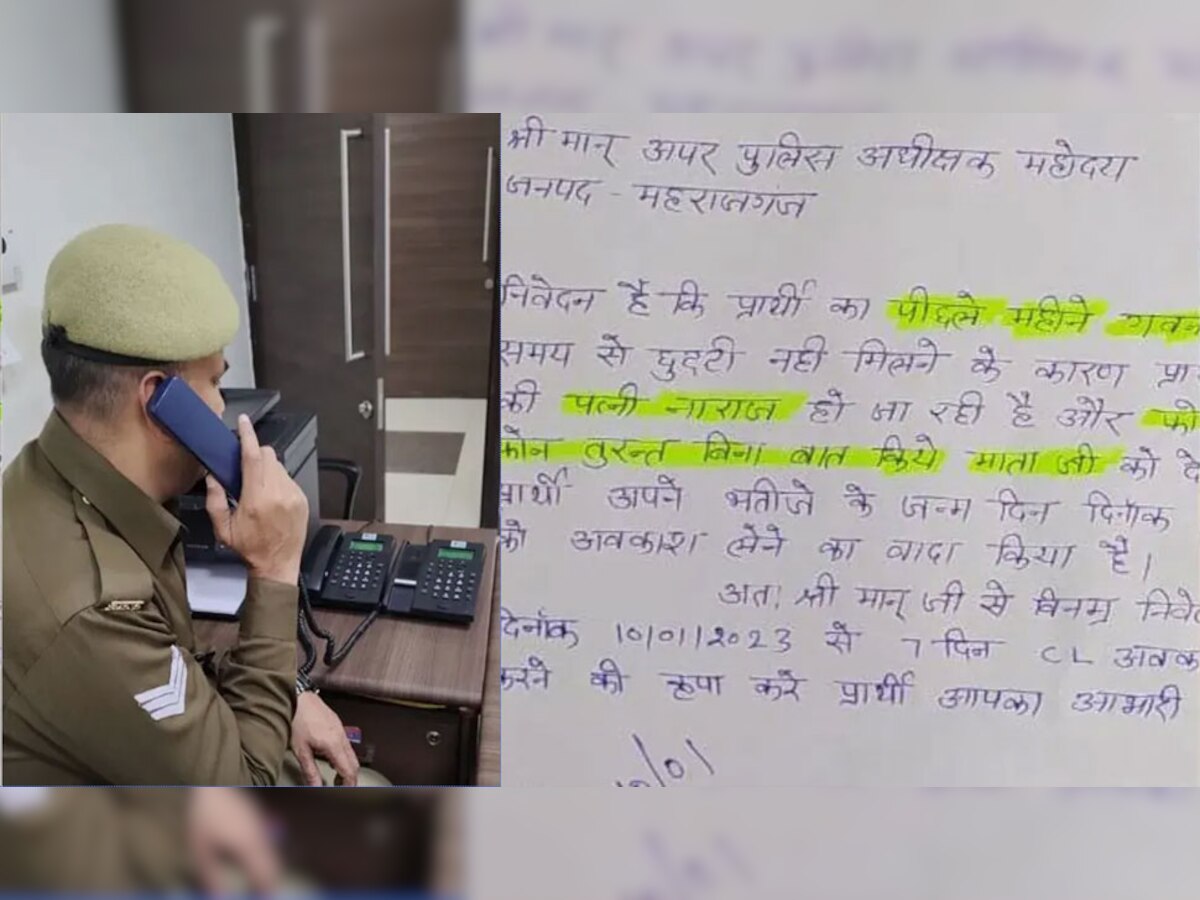 श्री मान् अपर पुलिस अधीक्षक महोदय
जनपद - महराजगंज
निवेदन है कि प्रार्थी का पीछले महीने गवन
समय से छुट्टी नही मिलने के कारण प्रा
की पत्नी नाराज हो जा रही है और फो
फोन तुरन्त बिना बात किये माता जी को दे
प्रार्थी अपने भतीजे के जन्म दिन दिनाँक
को अवकाश लेने का वादा किया है।
अतः श्री मान् जी से विनम्र निवे
दिनाँक 10/01/2023 से 7 दिन CL अवक
करने की कृपा करे प्रार्थी आपका आभारी